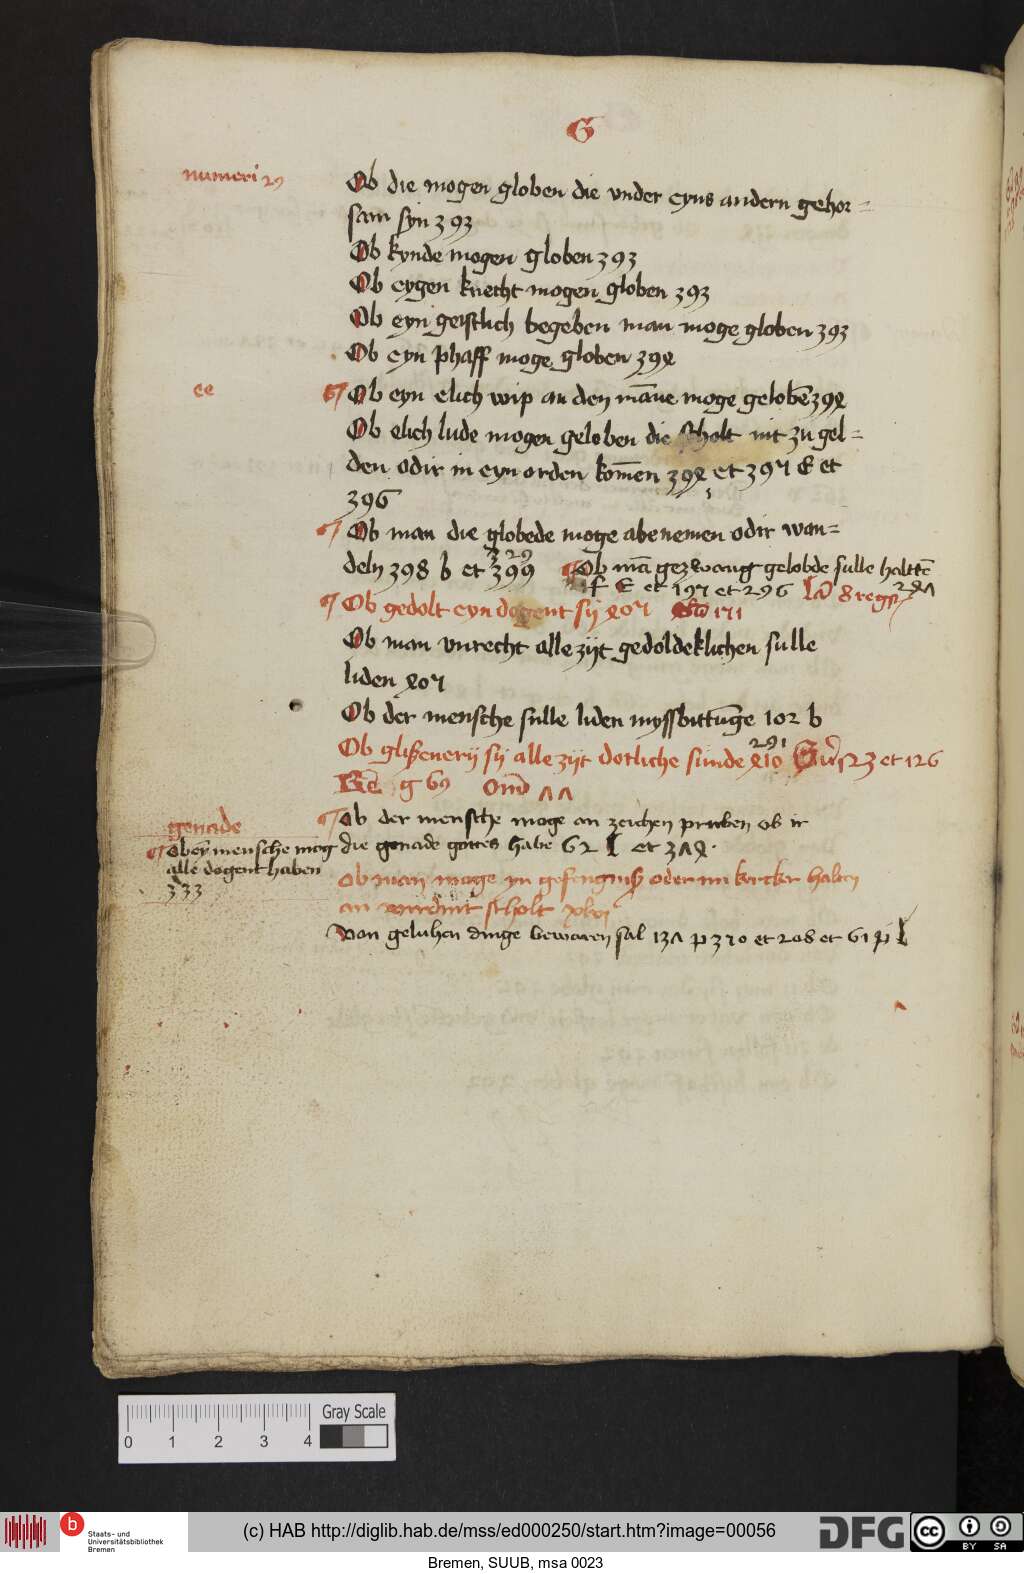 G
numeri 29
Ob die mogen globen die vnder eyns andern gehor=
sam syn 393
Ob kynde mogen globen 393
Ob eygen knecht mogen globen 393
Ob eyn geistlich begeben man moge globen 393
Ob eyn phaff moge globen 394
ee
Ob eyn elich wip an den māne moge gelobē 394
Ob elich lude mogen geloben die scholt nit zu gel=
den odir in eyn orden komēn 394 et 397 E et
396
Ob man die globede moge abenemen odir wan=
deln 398 b et 399
Ob mā gezwang gelobde sulle haltē
f E et 197 et 296
8 reg
Ob gedolt eyn dogent sij 407
171
Ob man vnrecht alle zijt gedoldeklichen sulle
liden 407
Ob der mensche sulle liden myssbittūge 102 b
291
Ob glißenerij sij alle zijt dotliche sunde 410
123 et 126
genade
Ob der mensche moge an zeichen pruben ob ir
die genade gottes habe 62 l et 374
Ober mensche mog
alle dogent haben
333
ob man moge yn gefengniß oder im kercker halten
an virdint scholt xlvi
Von geluhen dinge bewaren sal 137 p 370 et 208 et 61 p l
Gray Scale
0 1 2 3 4
b
Staats- und
Universitätsbibliothek
Bremen
(c) HAB http://diglib.hab.de/mss/ed000250/start.htm?image=00056
DFG
cc
BY SA
Bremen, SUUB, msa 0023